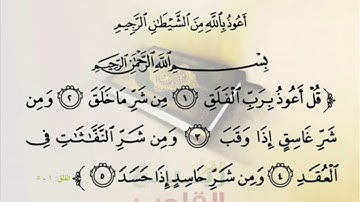 اَعُوذُ بِاللَّهِ مِنَ الشَّيْطَانِ الرَّجِيمِ
بِسْمِ اللَّهِ الرَّحْمَٰنِ الرَّحِيمِ
﴿ قُلْ أَعُوذُ بِرَبِّ الْفَلَقِ ﴿١﴾ مِن شَرِّ مَا خَلَقَ ﴿٢﴾ وَمِن
شَرِّ غَاسِقٍ إِذَا وَقَبَ ﴿٣﴾ وَمِن شَرِّ النَّفَّاثَاتِ فِي
الْعُقَدِ ﴿٤﴾ وَمِن شَرِّ حَاسِدٍ إِذَا حَسَدَ ﴿٥﴾ ﴾ الفلق: ١ - ٥